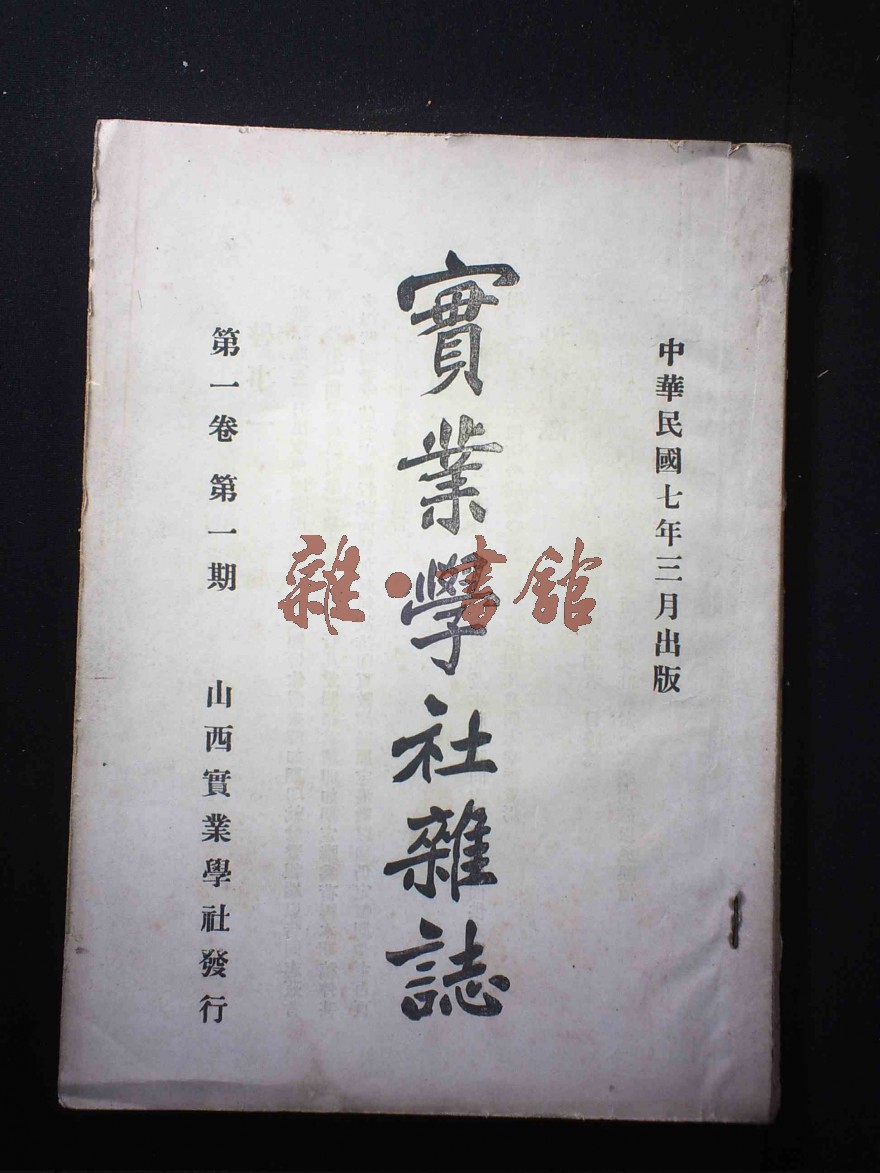 中華民國七年三月出版
實業學社雜誌
第一卷 第一期
山西實業學社發行
雜·書館